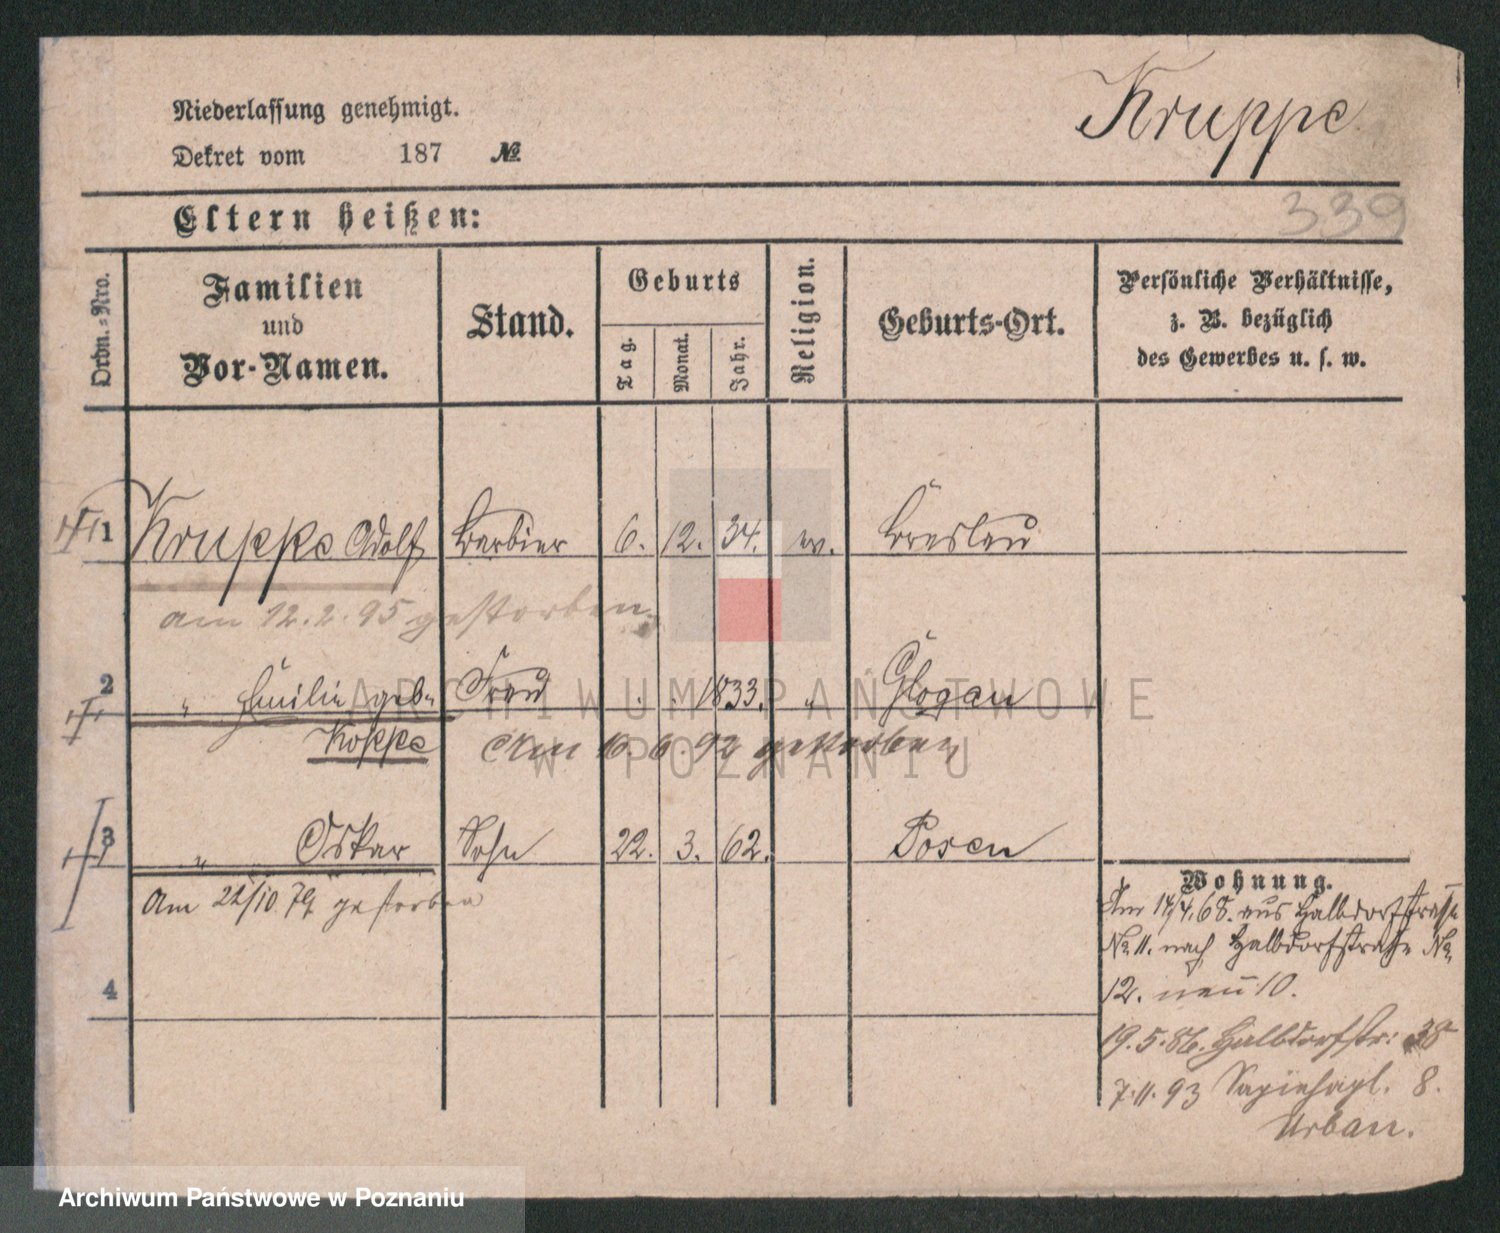 Kruppe
Niederlassung genehmigt.
Dekret vom 187 №
339
Eltern heißen:
Ordn.-Nro.
Familien
und
Vor-Namen.
Stand.
Geburts
Tag.
Monat.
Jahr.
Religion.
Geburts-Ort.
Persönliche Verhältnisse,
z. B. bezüglich
des Gewerbes u. s. w.
1 Kruppe Adolf Barbier 6. 12. 34. ev. Breslau
am 12.2.95 gestorben
2 " Emilie geb. Frau 1833. " Glogau
Koppe Am 16.6.92 gestorben
3 " Oskar Sohn 22. 3. 62. Posen
Am 22/10 79 gestorben
4
Wohnung.
Am 14/4.68. aus Halbdorfstraße
No. 11. nach Halbdorfstraße No.
12. neu 10.
19.5.86. Halbdorfstr: 38
7.11.93 Sapiehapl. 8.
Urban.
ARCHIWUM PAŃSTWOWE
W POZNANIU
Archiwum Państwowe w Poznaniu